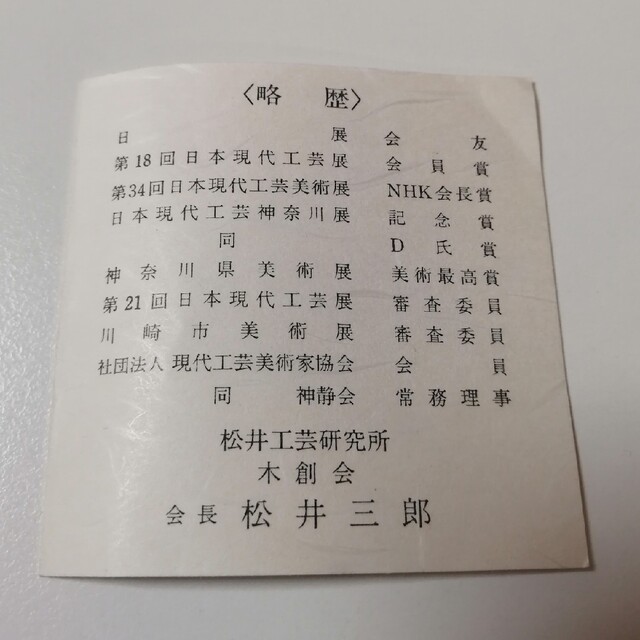 〈略歴〉
日展 会友
第18回日本現代工芸展 会員賞
第34回日本現代工芸美術展 NHK会長賞
日本現代工芸神奈川展 記念賞
同 D氏賞
神奈川県美術展 美術最高賞
第21回日本現代工芸展 審査委員
川崎市美術展 審査委員
社団法人 現代工芸美術家協会 会員
同 神静会 常務理事
松井工芸研究所
木創会
会長 松井三郎